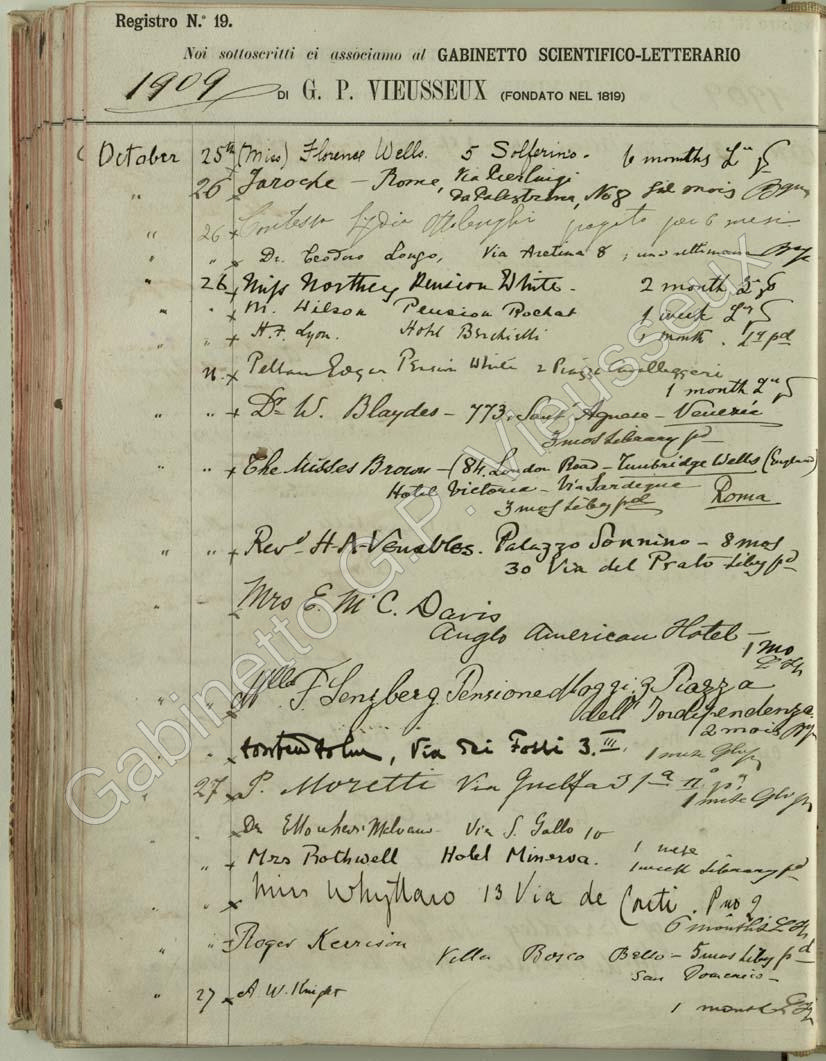 Registro N.º 19.
Noi sottoscritti ci associamo al GABINETTO SCIENTIFICO-LETTERARIO
1909 DI G. P. VIEUSSEUX (FONDATO NEL 1819)
October 25th (Miss) Florence Wells. 5 Solferino. 6 months
" 26 Laroche – Rome, Via Pierluigi
da Palestrina, No 8 mois
" 26 Contessa Lydia Ottolenghi pagato per 6 mesi
" " Dr. Teodoro Longo, Via Aretina 8; una settimana
" 26 Miss Northey Pension White. 2 month
" " M. Wilson Pension Rochat 1 week
" " H. F. Lyon. Hotel Berchielli 1 month. pd
" Edgar Pension White 2 Piazza Cavalleggeri
1 month
" " Dr W. Blaydes – 773. Sant' Agnese – Venezia
3 mos Library pd
" " The Misses Brown – (84. London Road – Tunbridge Wells (England)
Hotel Victoria – Via Sardegna Roma
3 mos Liby pd
" " Revd H. A. Venables. Palazzo Sonnino – 8 mos
30 Via del Prato Liby pd
" Mrs E. McC. Davis
Anglo American Hotel –
1 mo
" " Mlle F. Senzberg Pensione Maggi, 9 Piazza
dell' Indipendenza
2 mois
" , Via dei Fossi 3. III. 1 mese
" 27 P. Moretti Via Guelfa
1 mese
" Dr Via S. Gallo 10
1 mese
" " Mrs Rothwell Hotel Minerva. 1 week Library pd
" " Miss 13 Via de Conti. Pno 2
6 months
" " Roger Kerrison Villa Bosco Bello – 5 mos Liby pd
San Domenico –
" 27 A W. Knight
1 month
Gabinetto G.P. Vieusseux